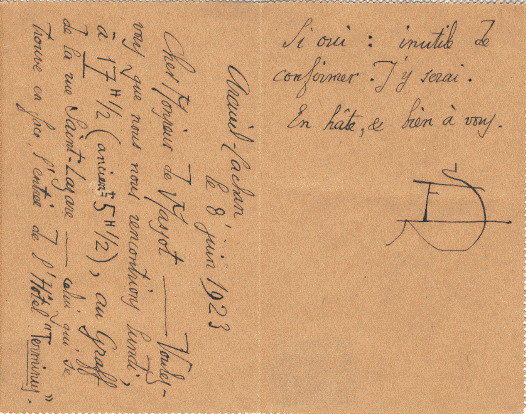 Arcueil-Cachan
le 8 juin 1923
Cher Monsieur de Massot — Voulez-
vous que nous nous rencontrions lundi,
à 17H 1/2 (ancient 5H 1/2), au Graff
de la rue Saint-Lazare — celui qui se
trouve en face l'entrée de l'Hôtel "Terminus".
Si oui : inutile de
confirmer. J'y serai.
En hâte, & bien à vous.